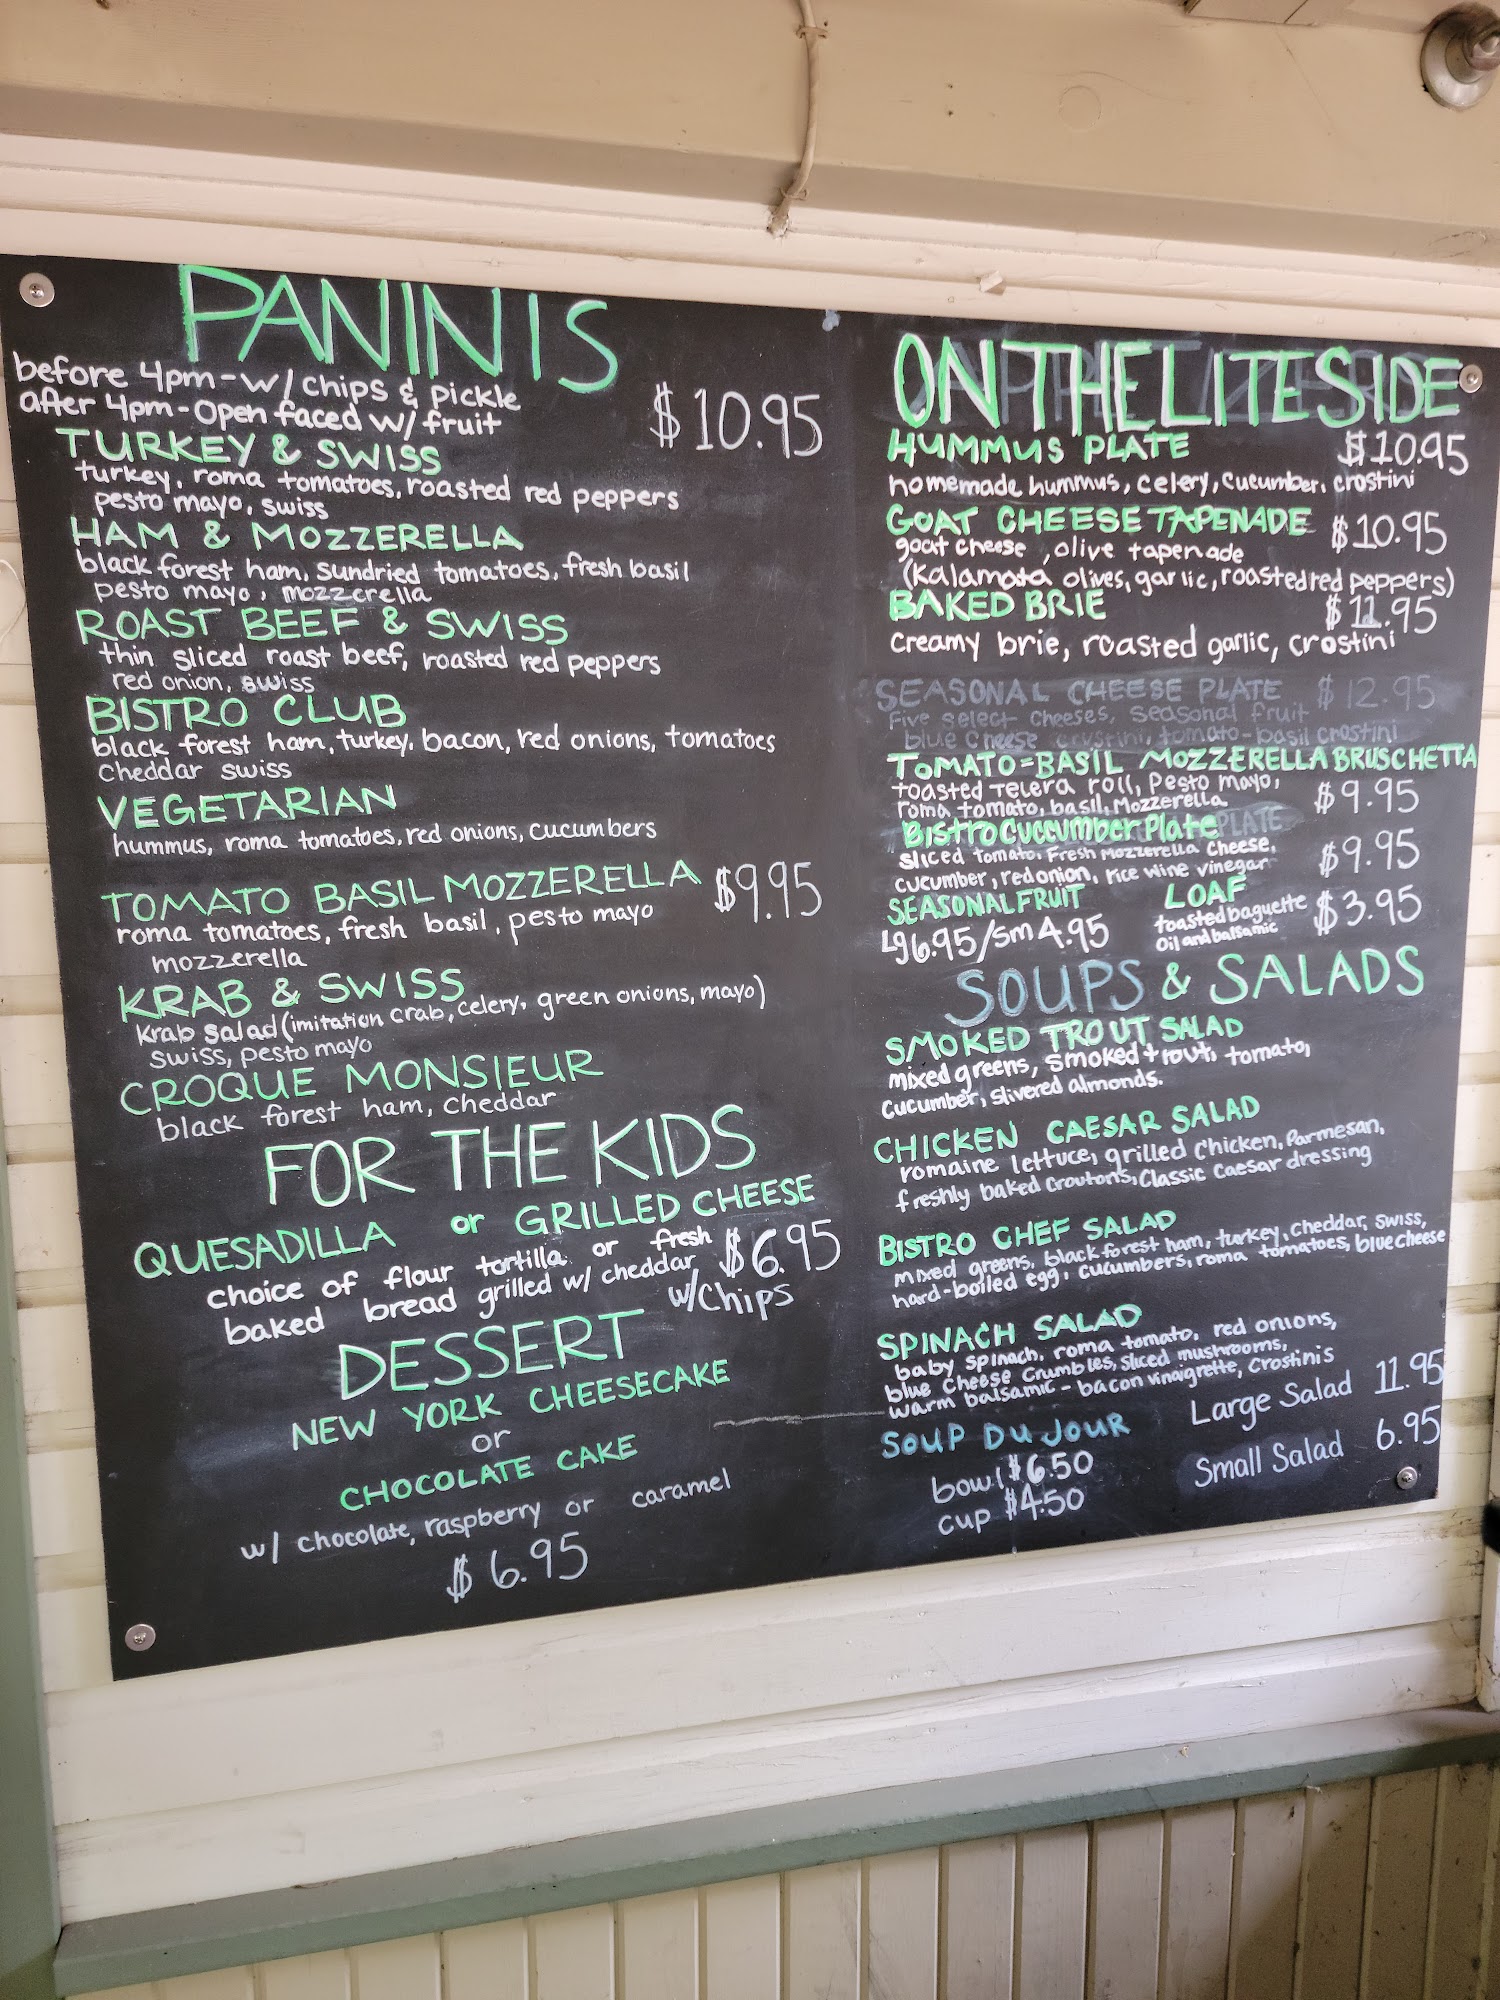 PANINIS
before 4pm-w/chips & pickle
after 4pm-Open faced w/fruit
$10.95
TURKEY & SWISS
turkey, roma tomatoes, roasted red peppers
pesto mayo, swiss
HAM & MOZZERELLA
black forest ham, sundried tomatoes, fresh basil
pesto mayo, mozzerella
ROAST BEEF & SWISS
thin sliced roast beef, roasted red peppers
red onion, swiss
BISTRO CLUB
black forest ham, turkey, bacon, red onions, tomatoes
cheddar swiss
VEGETARIAN
hummus, roma tomatoes, red onions, cucumbers
TOMATO BASIL MOZZERELLA $9.95
roma tomatoes, fresh basil, pesto mayo
mozzerella
KRAB & SWISS
krab salad (imitation crab, celery, green onions, mayo)
swiss, pesto mayo
CROQUE MONSIEUR
black forest ham, cheddar
FOR THE KIDS
QUESADILLA or GRILLED CHEESE
choice of flour tortilla or fresh $6.95
baked bread grilled w/ cheddar w/chips
DESSERT
NEW YORK CHEESECAKE
or
CHOCOLATE CAKE
w/ chocolate, raspberry or caramel
$6.95
ON THE LITE SIDE
HUMMUS PLATE $10.95
homemade hummus, celery, cucumber, crostini
GOAT CHEESE TAPENADE $10.95
goat cheese, olive tapenade
(Kalamata olives, garlic, roasted red peppers)
BAKED BRIE $11.95
creamy brie, roasted garlic, crostini
SEASONAL CHEESE PLATE $12.95
five select cheeses, seasonal fruit
blue cheese crostini, tomato-basil crostini
TOMATO-BASIL MOZZERELLA BRUSCHETTA
toasted Telera roll, Pesto mayo, $9.95
roma tomato, basil, Mozzerella
Bistro Cuccumber Plate PLATE
sliced tomato, Fresh Mozzerella Cheese, $9.95
cucumber, red onion, rice wine vinegar
SEASONAL FRUIT
Lg 6.95/Sm 4.95
LOAF
toasted baguette $3.95
Oil and balsamic
SOUPS & SALADS
SMOKED TROUT SALAD
mixed greens, smoked trout, tomato,
cucumber, slivered almonds.
CHICKEN CAESAR SALAD
romaine lettuce, grilled chicken, Parmesan,
freshly baked croutons, Classic Caesar dressing
BISTRO CHEF SALAD
mixed greens, black forest ham, turkey, cheddar, swiss,
hard-boiled egg, cucumbers, roma tomatoes, blue cheese
SPINACH SALAD
baby spinach, roma tomato, red onions,
blue Cheese Crumbles, sliced mushrooms,
warm balsamic-bacon vinaigrette, Crostinis
Large Salad 11.95
Small Salad 6.95
SOUP DU JOUR
bowl $6.50
cup $4.50